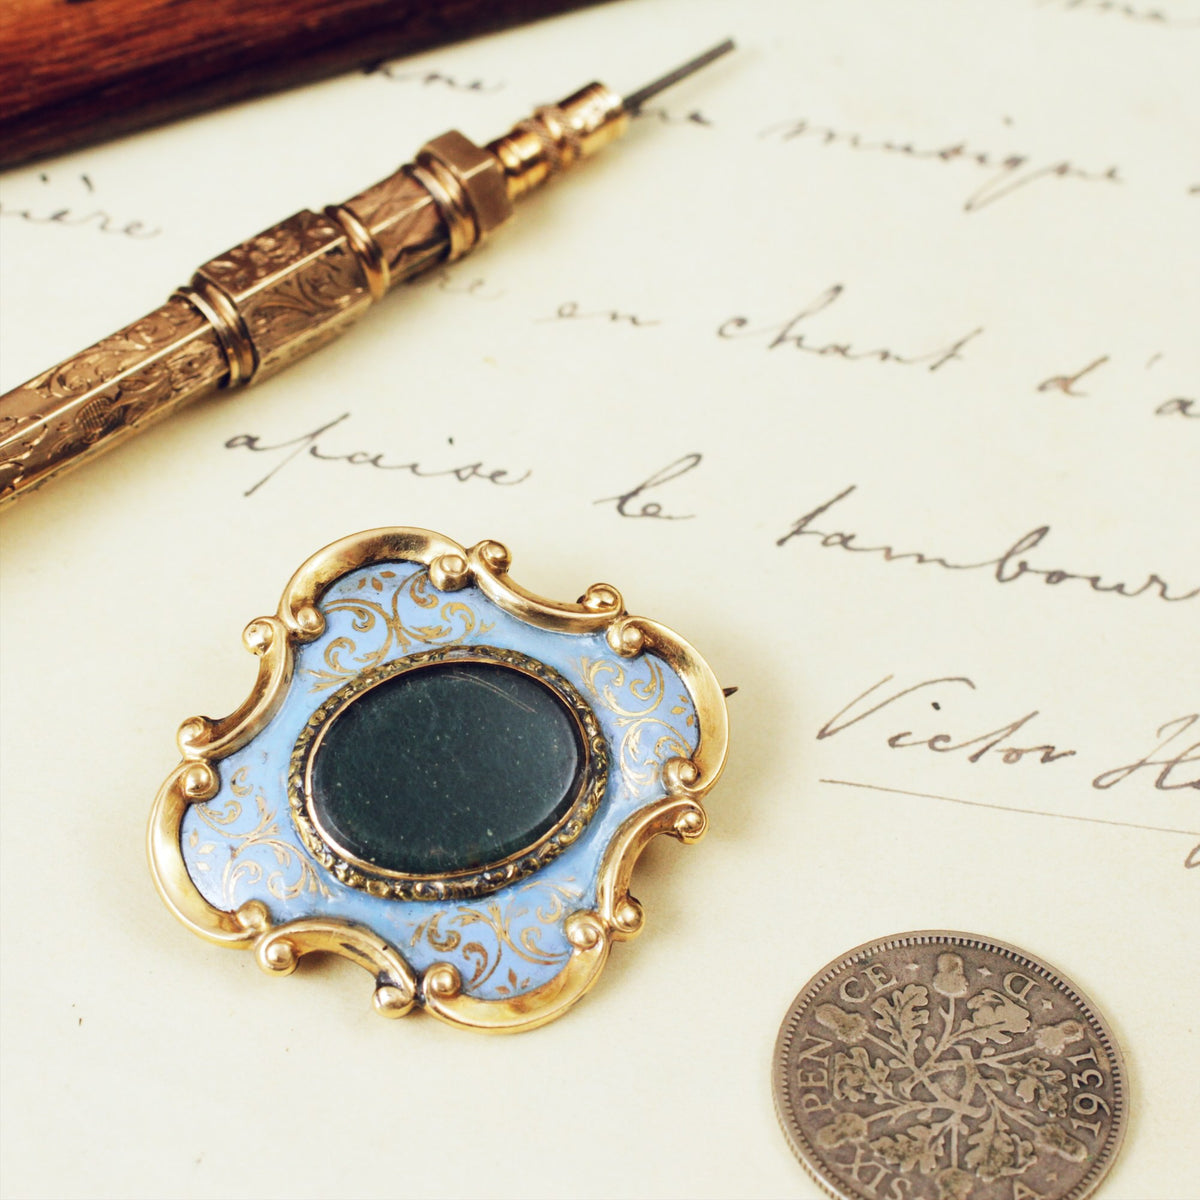 musique
en chant d'a
apaise le tambour
Victor
SIXPENCE · D · 1931 · A